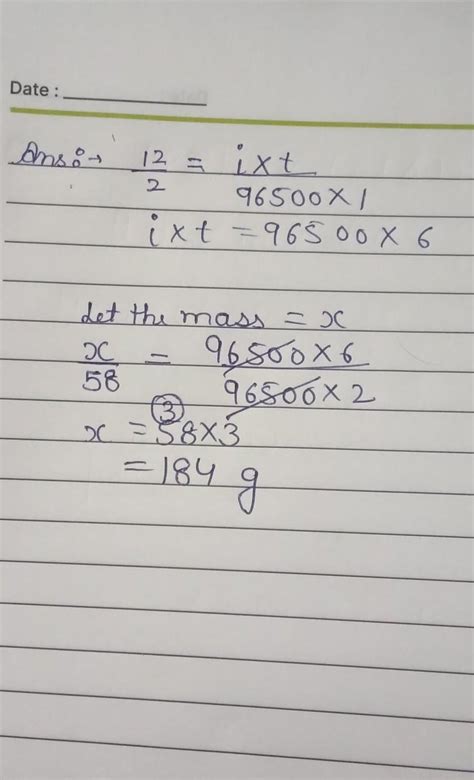 Date :
Ans:→ 12/2 = i×t / 96500×1
i×t = 96500×6
Let the mass = x
x/58 = 96500×6 / 96500×2
3
x = 58×3
= 184 g